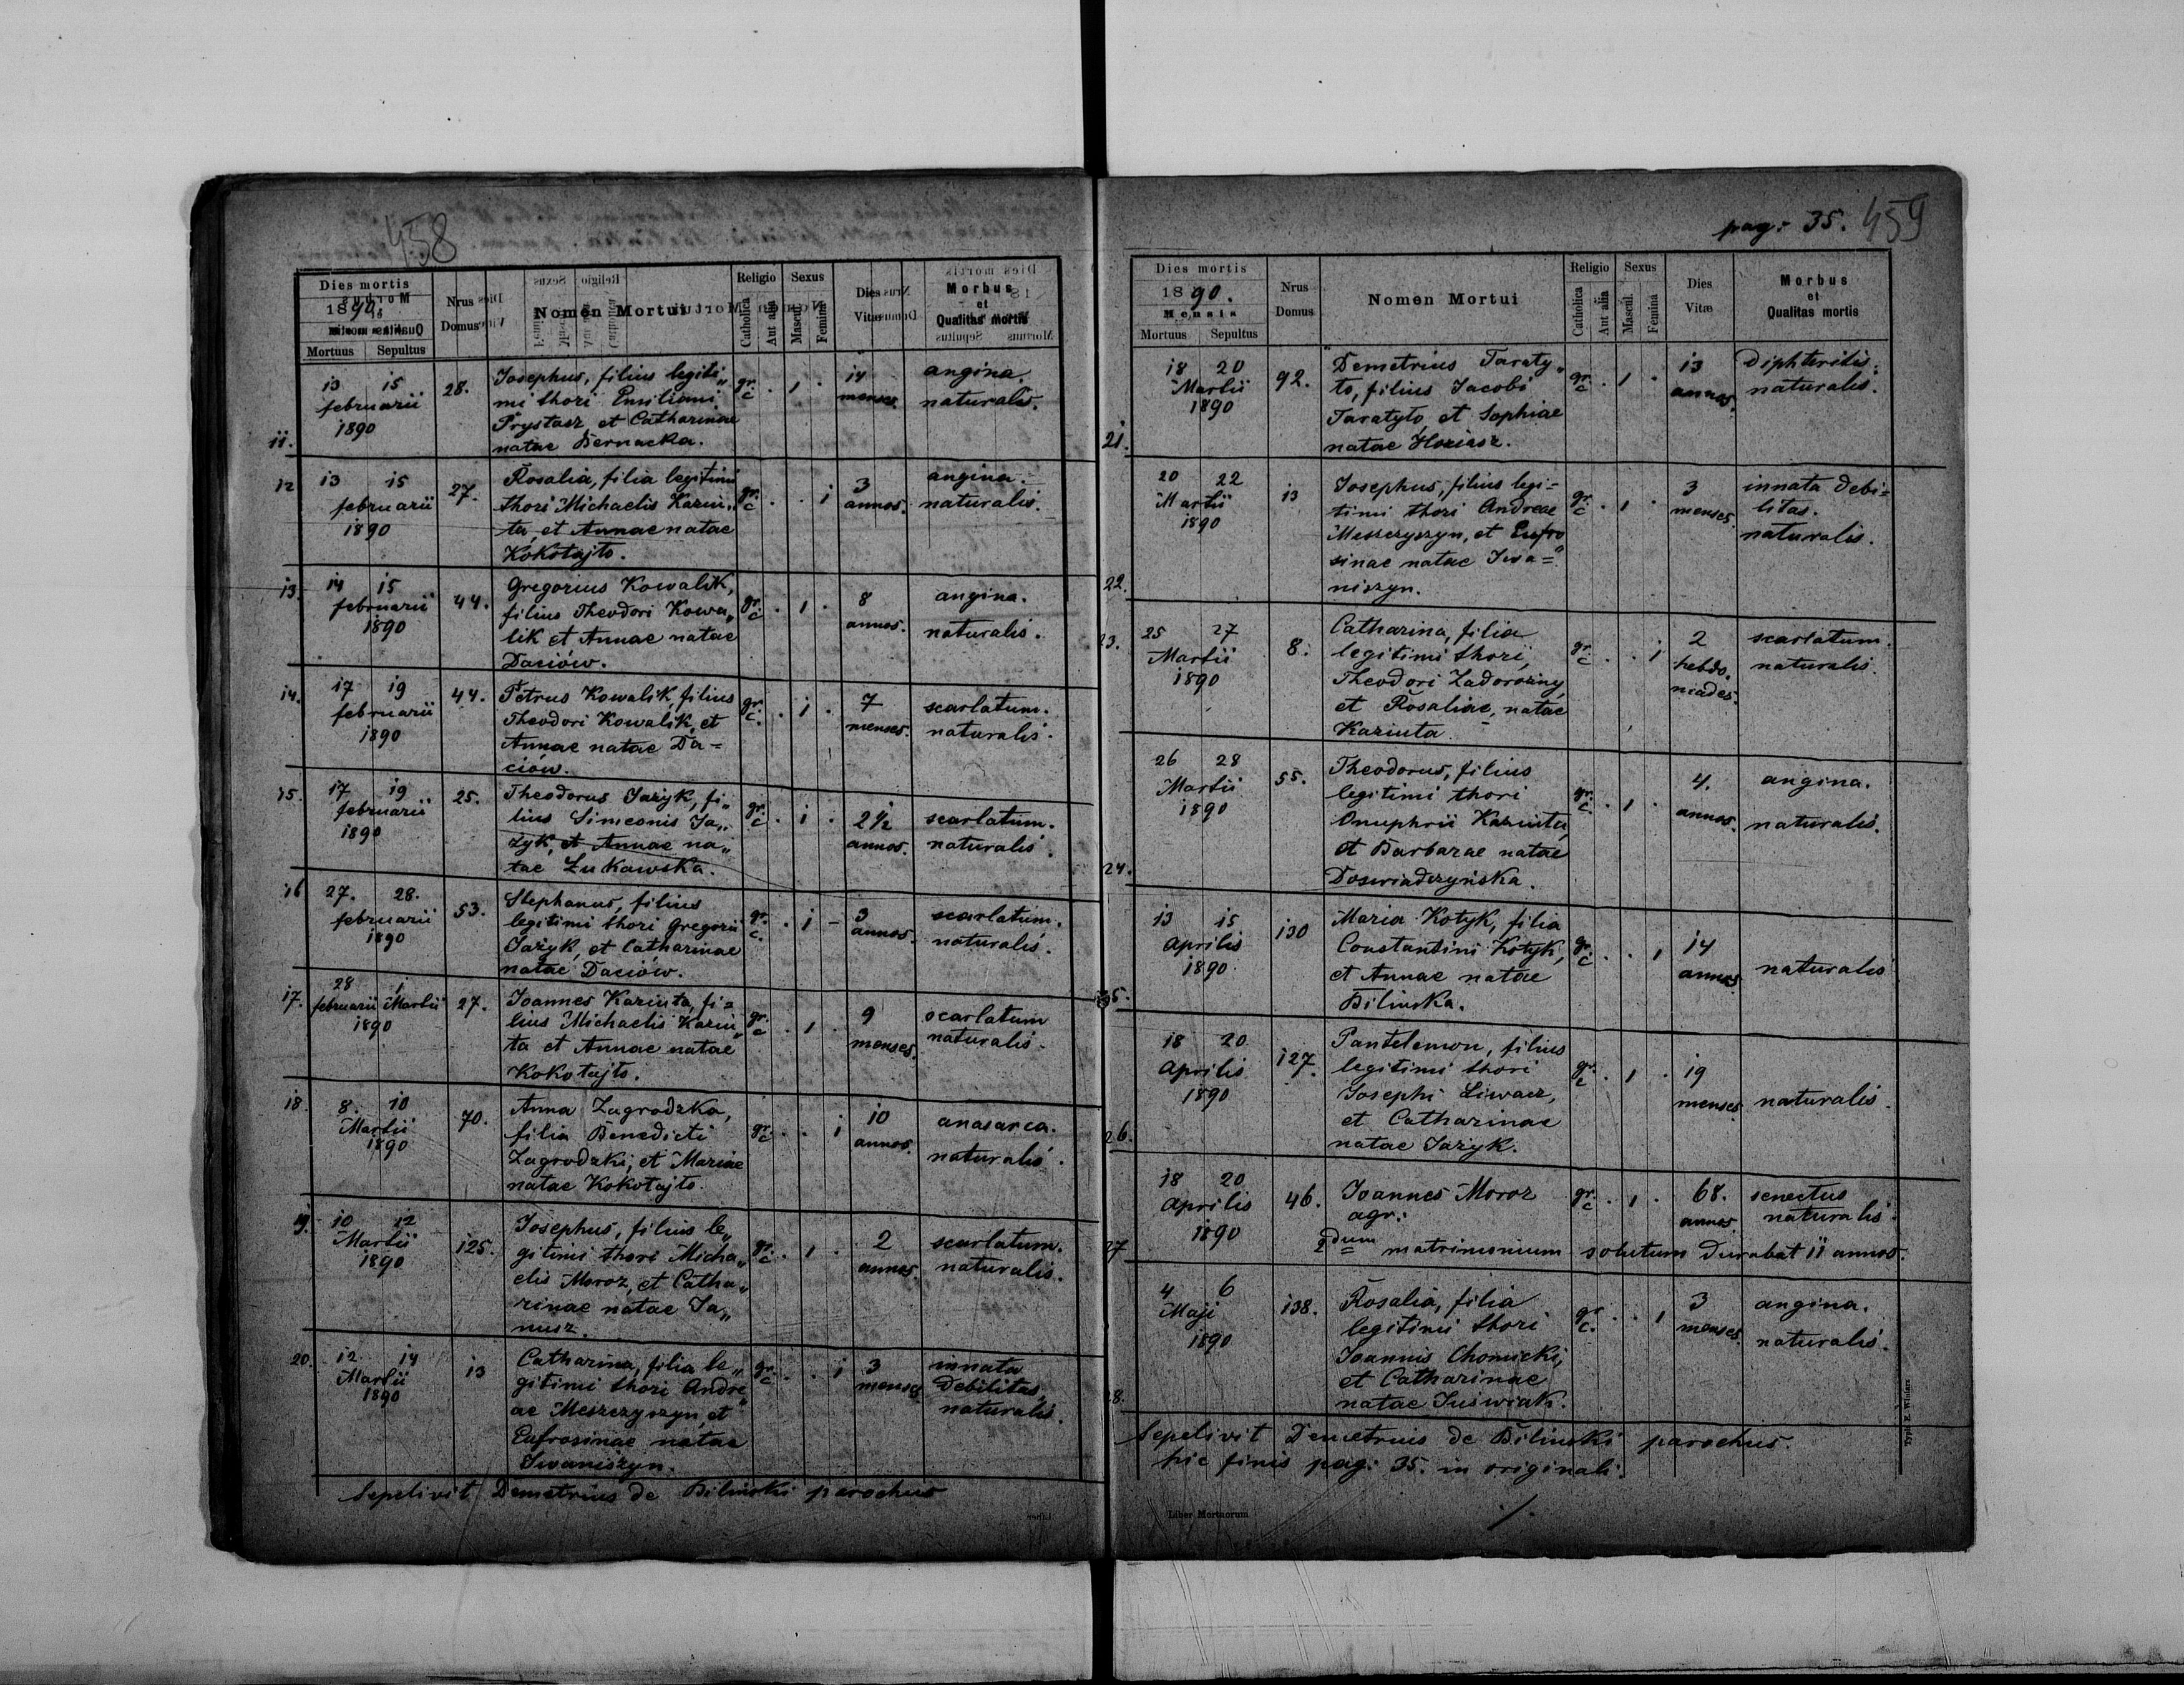 458
Dies mortis
1890.
Mensis
Mortuus Sepultus
Nrus Domus
Nomen Mortui
Religio
Catholica
Aut alia
Sexus
Mascul.
Femina
Dies Vitæ
Morbus
et
Qualitas mortis
11.
13 15
februarii
1890
28.
Josephus, filius legiti„
mi thori Emiliani
Prystasz et Catharinae
natae Bernacka.
gr. c
. 1 .
14
menses.
angina.
naturalis.
12
13 15
februarii
1890
27.
Rosalia, filia legitimi
thori Michaelis Kaziu„
ta, et Annae natae
Kokotajło.
gr. c
. . 1
3
annos.
angina.
naturalis.
13.
14 15
februarii
1890
44.
Gregorius Kowalik,
filius Theodori Kowa„
lik et Annae natae
Daciów.
gr. c
. 1 .
8
annos.
angina.
naturalis.
14.
17 19
februarii
1890
44.
Petrus Kowalik, filius
Theodori Kowalik, et
Annae natae Da=
ciów.
gr. c.
. 1 .
7
menses.
scarlatum.
naturalis.
15.
17 19
februarii
1890
25.
Theodorus Jażyk, fi„
lius Simeonis Ja„
żyk, et Annae na„
tae Łukawska.
gr. c
. 1 .
2 1/2
annos.
scarlatum.
naturalis.
16
27. 28.
februarii
1890
53.
Stephanus, filius
legitimi thori Gregorii
Jażyk, et Catharinae
natae Daciów.
gr. c.
. 1 -
3
annos.
scarlatum.
naturalis.
17.
28 1
februarii Martii
1890
27.
Joannes Kaziuta, fi=
lius Michaelis Kaziu„
ta et Annae natae
Kokotajło.
gr. c
. 1 .
9
menses.
scarlatum
naturalis.
18.
8. 10
Martii
1890
70.
Anna Zagrodzka,
filia Benedicti
Zagrodzki, et Mariae
natae Kokotajło.
gr. c
. . 1
10
annos.
anasarca.
naturalis.
19.
10 12
Martii
1890
125.
Josephus, filius le„
gitimi thori Micha„
elis Moroz, et Catha„
rinae natae Ja„
nusz.
gr. c
. 1 .
2
annos.
scarlatum.
naturalis.
20.
12 14
Martii
1890
13
Catharina, filia le„
gitimi thori Andre„
ae Meszczyszyn, et
Eufrosinae natae
Iwaniszyn.
gr. c
. . 1
3
menses
innata
debilitas,
naturalis.
Sepelivit Demetrius de Bilinski parochus
pag: 35. 459
Dies mortis
1890.
Mensis
Mortuus Sepultus
Nrus Domus
Nomen Mortui
Religio
Catholica
Aut alia
Sexus
Mascul.
Femina
Dies Vitæ
Morbus
et
Qualitas mortis
21.
18 20
Martii
1890
92.
Demetrius Taraty„
ło, filius Jacobi
Taratyło, et Sophiae
natae
gr. c
. 1 .
13
annos.
Diphteritis.
naturalis.
22.
20 22
Martii
1890
13
Josephus, filius legi=
timi thori Andreae
Meszczyszyn, et Eufro„
sinae natae Iwa=
niszyn.
gr. c
. 1 .
3
menses.
innata debi=
litas.
naturalis.
23.
25 27
Martii
1890
8.
Catharina, filia
legitimi thori,
Theodori Zadorożny,
et Rosaliae, natae
Kaziuta.
gr. c
. . 1
2
hebdo.
mades.
scarlatum.
naturalis.
24.
26 28
Martii
1890
55.
Theodorus, filius
legitimi thori
Onuphrii Kaziuta,
et Barbarae natae
Doświadczyńska.
gr. c
. 1 .
4.
annos.
angina.
naturalis.
25.
13 15
Aprilis
1890.
130
Maria Kotyk, filia
Constantini Kotyk,
et Annae natae
Bilinska.
gr. c
. . 1
14
annos.
naturalis
26.
18 20
Aprilis
1890
127.
Pantelemon, filius
legitimi thori
Josephi Liwacz,
et Catharinae
natae Jażyk.
gr. c
. 1 .
19
menses
naturalis.
27
18 20
Aprilis
1890
46.
Joannes Moroz
agr:
2dum matrimonium solutum durabat 11 annos.
gr. c
. 1 .
68.
annos.
senectus
naturalis.
28.
4 6
Maji
1890
138.
Rosalia, filia
legitimi thori
Joannis Chomicki,
et Catharinae
natae Juświak.
gr. c.
. . 1
3
menses.
angina.
naturalis.
Sepelivit Demetrius de Bilinski parochus.
hic finis pag: 35. in originali.
Liber Mortuorum